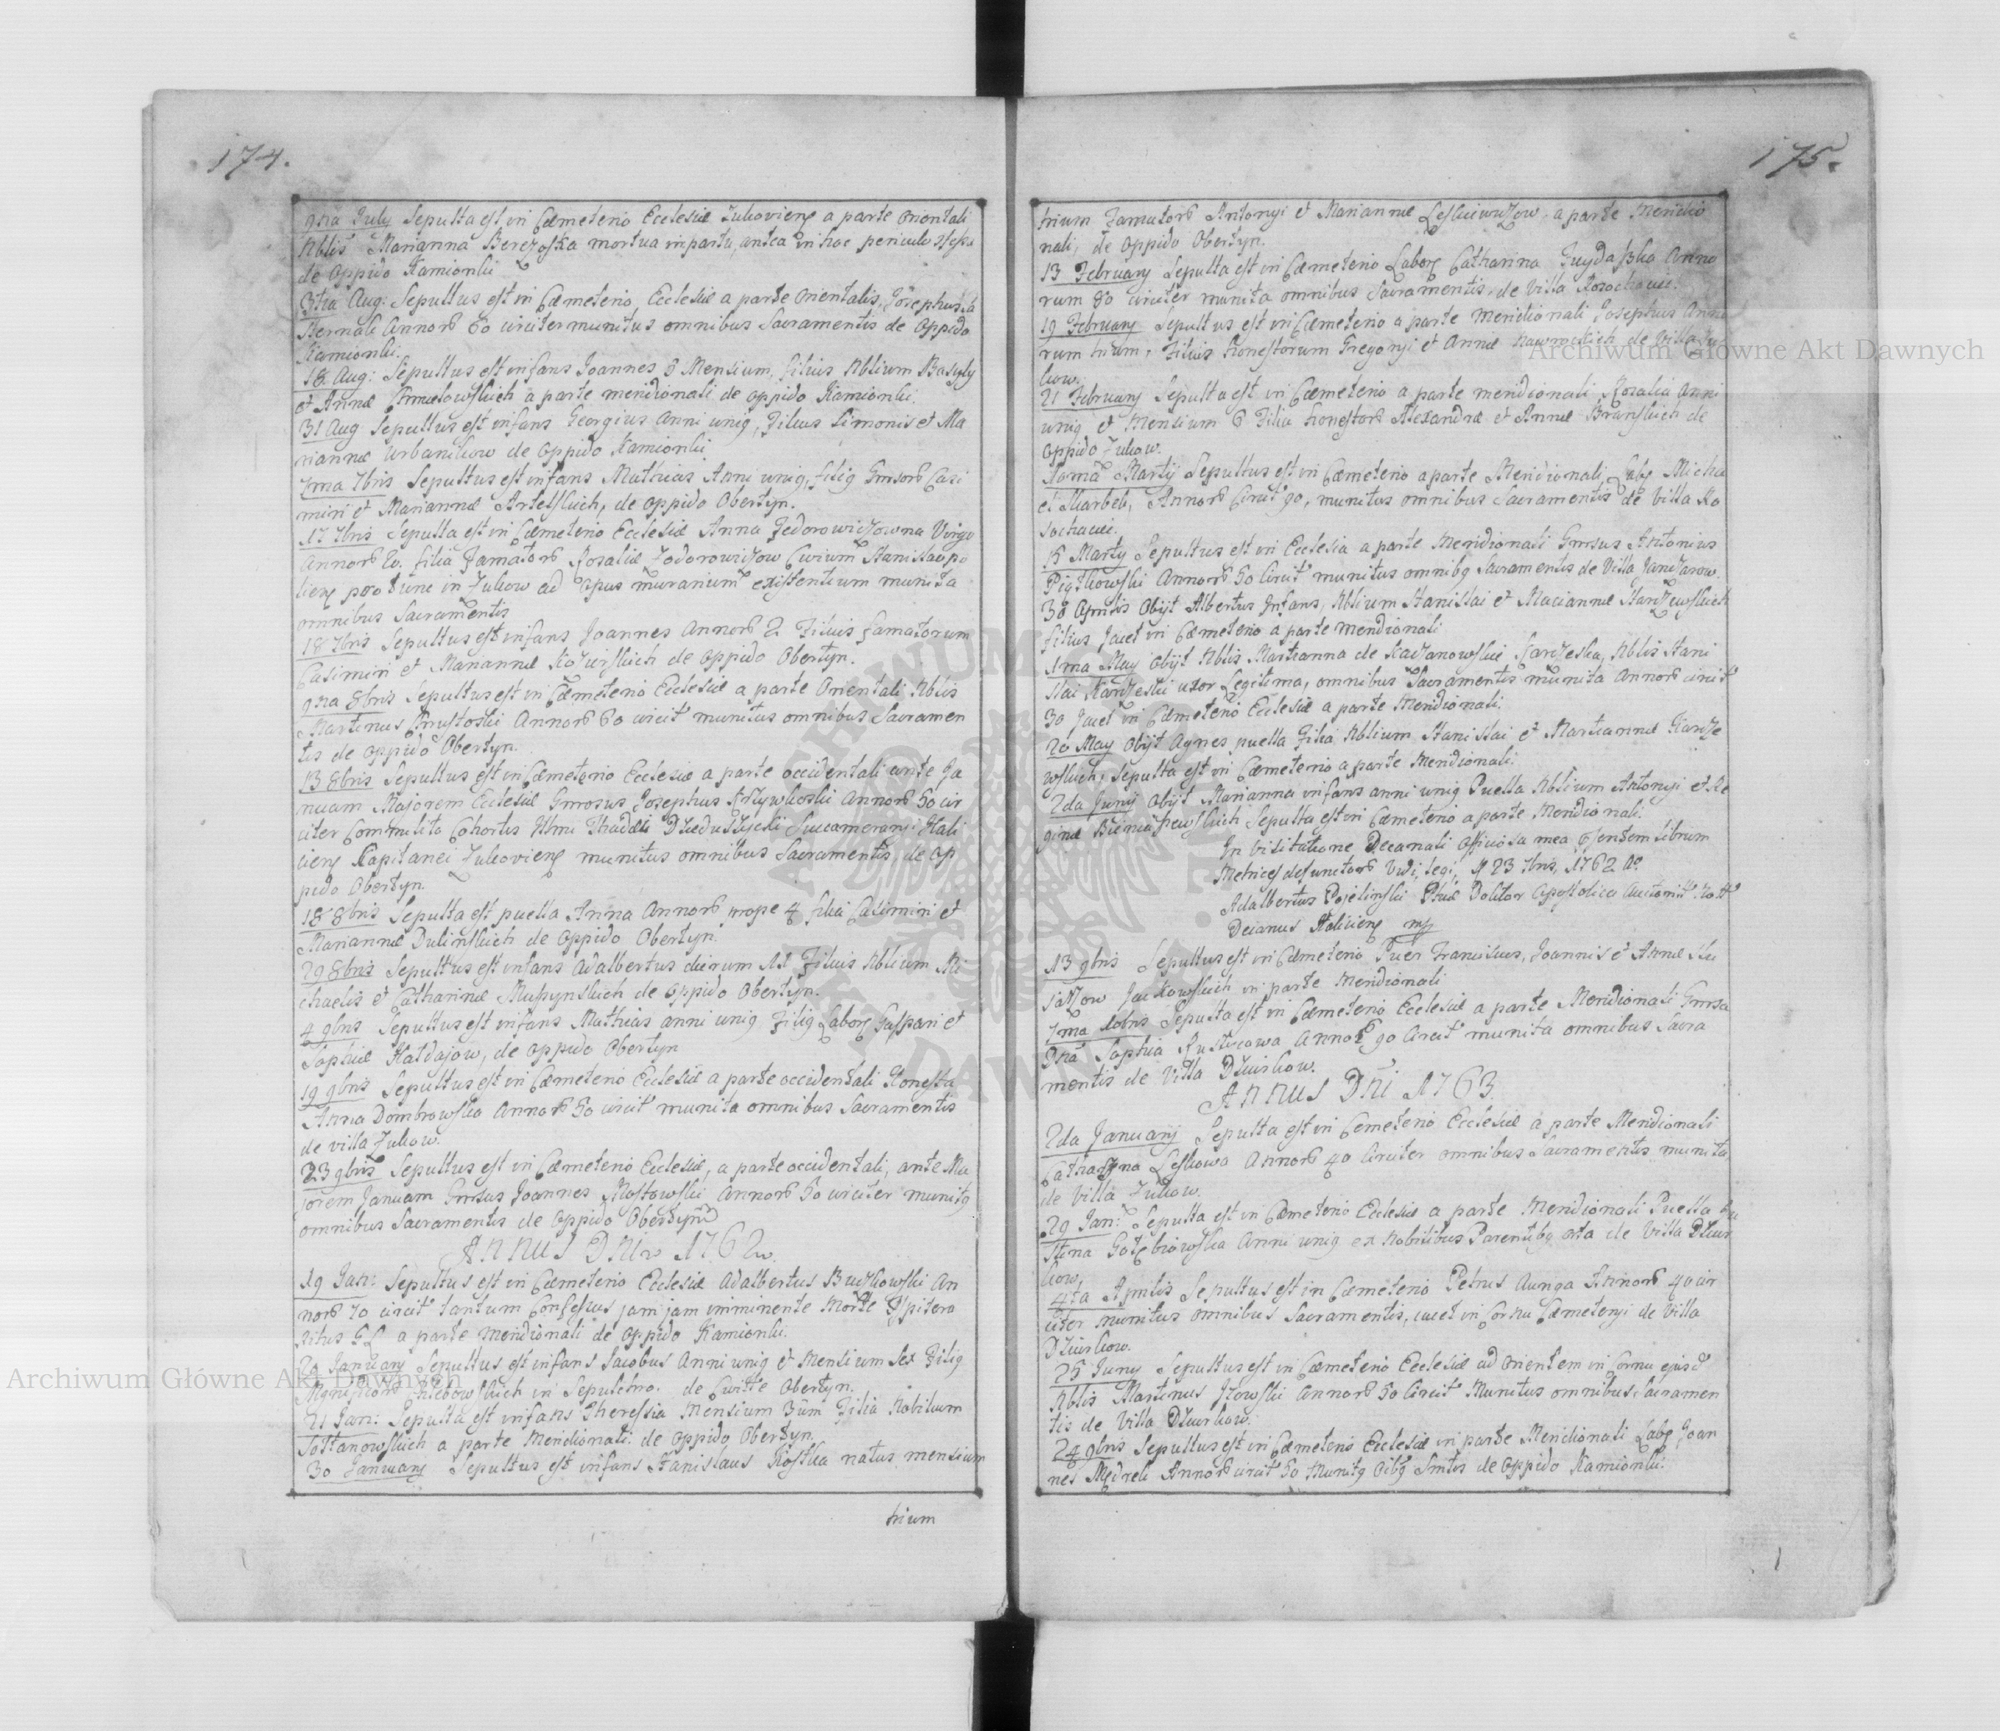 174.
9na July Sepulta est in Cæmeterio Ecclesiæ Zukoviens a parte Orientali
Nblis Marianna Berezoska mortua in partu, antea in hoc periculo
de Oppido Kamionki
3tia Aug: Sepultus est in Cæmeterio Ecclesiæ a parte Orientalis, Josephus
Annor 60 circiter munitus omnibus Sacramentis de Oppido
Kamionki.
18 Aug: Sepultus est infans Joannes 8 Mensium, filius Nblium Basyly
et Annæ a parte meridionali de oppido Kamionki.
31 Aug Sepultus est infans Georgius Anni unig, Filius Simonis et Ma
riannæ Urbanikow de Oppido Kamionki
7ma 7bris Sepultus est infans Mathias Anni unig, filig Gnrsor Casi
miri et Mariannæ Artelskich, de Oppido Obertyn.
17 7bris Sepulta est in Cæmeterio Ecclesiæ Anna Fedorowiczowna Virgo
Annor 20. filia Famator Rosaliæ Fodorowiczow Civium Stanislaopo
liens pro tunc in Zukow ad opus murarium existentium munita
omnibus Sacramentis
18 7bris Sepultus est infans Joannes Annor 2 Filius famatorum
Casimiri et Mariannæ de Oppido Obertyn.
9na 8bris Sepultus est in Cæmeterio Ecclesiæ a parte Orientali Nblis
Martinus Prustoski Annor 60 circit munitus omnibus Sacramen
tis de Oppido Obertyn.
13 8bris Sepultus est in Cæmeterio Ecclesiæ a parte occidentali ante Ja
nuam Majorem Ecclesiæ Gnrosus Josephus Krzywkoski Annor 50 cir
citer Commilito Cohortis Illmi Thaddei Dzieduszycki Succamerarij Hali
ciens Kapitanei Zukoviens munitus omnibus Sacramentis, de Op
pido Obertyn
18 8bris Sepulta est puella Anna Annor prope 4 filia Casimiri et
Mariannæ Dulinskich de Oppido Obertyn.
29 8bris Sepultus est infans Adalbertus dierum 11 Filius Nblium Mi
chaelis et Catharinæ Muszynskich de Oppido Obertyn.
4 9bris Sepultus est infans Mathias anni unig Filig Labors Gaspari et
Sophiæ Hatdajow, de Oppido Obertyn
19 9bris Sepultus est in Cæmeterio Ecclesiæ a parte occidentali Honesta
Anna Dombrowska Annor 50 circit munita omnibus Sacramentis
de villa Zukow.
23 9bris Sepultus est in Cæmeterio Ecclesiæ, a parte occidentali, ante Ma
jorem Januam Gnrsus Joannes Mostowski Annor 50 circiter munitg
omnibus Sacramentis de Oppido Obertyn
Annus Dni 1762
19 Jan: Sepultus est in Cæmeterio Ecclesiæ Adalbertus Buczkowski An
nor 70 circit tantum Confessus jam jam imminente Morte
a parte Meridionali de Oppido Kamionki.
20 January Sepultus est infans Jacobus Anni unig et Mensium Sex Filig
Chlebowskich in Sepulchro. de Obertyn.
21 Jan: Sepulta est infans Theressia Mensium 3um Filia Nobilium
Sottanowskich a parte Meridionali. de Oppido Obertyn.
30 January Sepultus est infans Stanislaus Kostka natus mensium
trium
175.
trium Famator Antonyi et Mariannæ Leskiewiczow, a parte Meridio
nali, de Oppido Obertyn.
13 February Sepulta est in Cæmeterio Labors Catharina Anno
rum 80 circiter munita omnibus Sacramentis, de Villa Rosochacie.
19 February Sepultus est in Cæmeterio a parte Meridionali Josephus Anno
rum trium, Filius Honestorum Gregoryi et Annæ de Villa Zu
kow.
21 February Sepulta est in Cæmeterio a parte meridionali Rosalia Anni
unig et Mensium 6 Filia honestor Alexandræ et Annæ Branskich de
Oppido Zukow.
Marty Sepultus est in Cæmeterio a parte Meridionali, Labs Micha
el Annor Circit 90, munitus omnibus Sacramentis de Villa Ro
sochacie.
15 Marty Sepultus est in Ecclesia a parte Meridionali Gnrsus Antonius
Piątkowski Annor 50 Circit munitus omnibg Sacramentis de Villa Janczarow.
30 Aprilis Obijt Albertus Infans, Nblium Stanislai et Mariannæ
filius Jacet in Cæmeterio a parte meridionali
1ma May Obijt Nblis Martianna de Nblis Stani
slai uxor Legitima, omnibus Sacramentis munita Annor circit
30 Jacet in Cæmeterio Ecclesiæ a parte Meridionali.
20 May Obijt Agnes puella Filia Nblium Stanislai et Martiannæ
wskich, Sepulta est in Cæmeterio a parte Meridionali.
2da Junij Obijt Marianna infans anni unig Puella Nblium Antonyi et Re
ginæ Sepulta est in Cæmeterio a parte Meridionali.
In Visitatione Decanali Officiosa mea, Librum
Metrices defunctor Vidi, legi, 23 7bris, 1762 Ao
Adalbertus Doctor Apostolica
Decanus Haliciens mp
13 9bris Sepultus est in Cæmeterio Puer Franciscus, Joannis et Annæ
Jackowskich in parte Meridionali
7ma Xbris Sepulta est in Cæmeterio Ecclesiæ a parte Meridionali Gnrsa
Dna Sophia Annor 90 Circit munita omnibus Sacra
mentis de Villa Dzurkow.
Annus Dni 1763.
2da January Sepulta est in Cæmeterio Ecclesiæ a parte Meridionali
Catharyna Leskowa Annor 40 Circiter omnibus Sacramentis munita,
de Villa Zukow.
29 Jan: Sepulta est in Cæmeterio Ecclesiæ a parte Meridionali Puella Ju
styna Gołębiowska Anni unig ex Nobilibus Parentibg orta de Villa Dzur
kow.
4ta Aprilis Sepultus est in Cæmeterio Petrus Annor 40 cir
citer munitus omnibus Sacramentis, iacet in Cornu Cæmeteryi de Villa
Dzurkow.
25 Juny Sepultus est in Cæmeterio Ecclesiæ ad Orientem in Cornu ejusd
Nblis Martinus Annor 50 Circit Munitus omnibus Sacramen
tis de Villa Dzurkow.
24 9bris Sepultus est in Cæmeterio Ecclesiæ in parte Meridionali Labs Joan
nes Annor circit 50 Munitg Oibg Smtis de Oppido Kamionki.
Archiwum Główne Akt Dawnych
Archiwum Główne Akt Dawnych